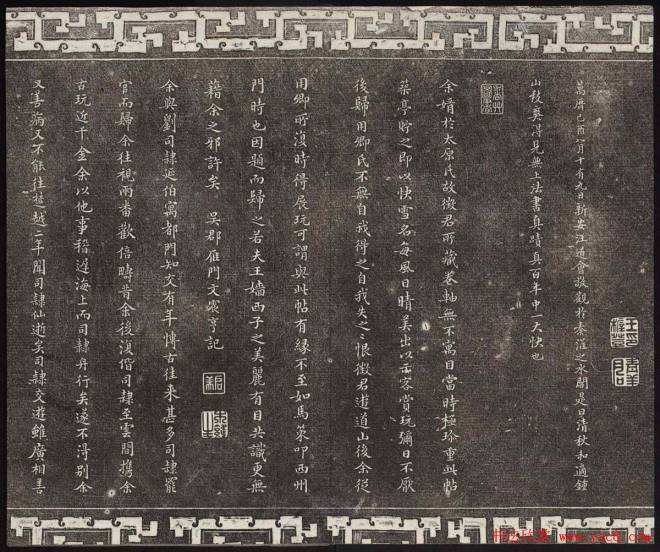 萬曆己酉八月十有九日新安江道會敬觀於秦淮之水閣是日清秋和適鍾
山殘奐得見無上法書真蹟真百年中一大快也
余壻於太原氏故徵君所藏卷軸無不寓目當時極珍重此帖
築亭貯之即以快雪名每風日晴美出以示客賞玩彌日不厭
後歸用卿氏不無自我得之自我失之之恨徵君遊道山後余從
用卿所復時得展玩可謂與此帖有緣不至如馬策叩西州
門時也因題而歸之若夫王嬙西子之美麗有目共識更無
藉余之邪許矣 吳郡雁門文震亨記
余與劉司隸延伯寓都門知交有年博古往來甚多司隸罷
官而歸余往視兩番歡倍疇昔余後復偕司隸至雲間攜余
古玩近千金余以他事稽遲海上而司隸舟行矣遂不得別余
又善病又不能往楚越二年聞司隸仙逝矣司隸交遊雖廣相善